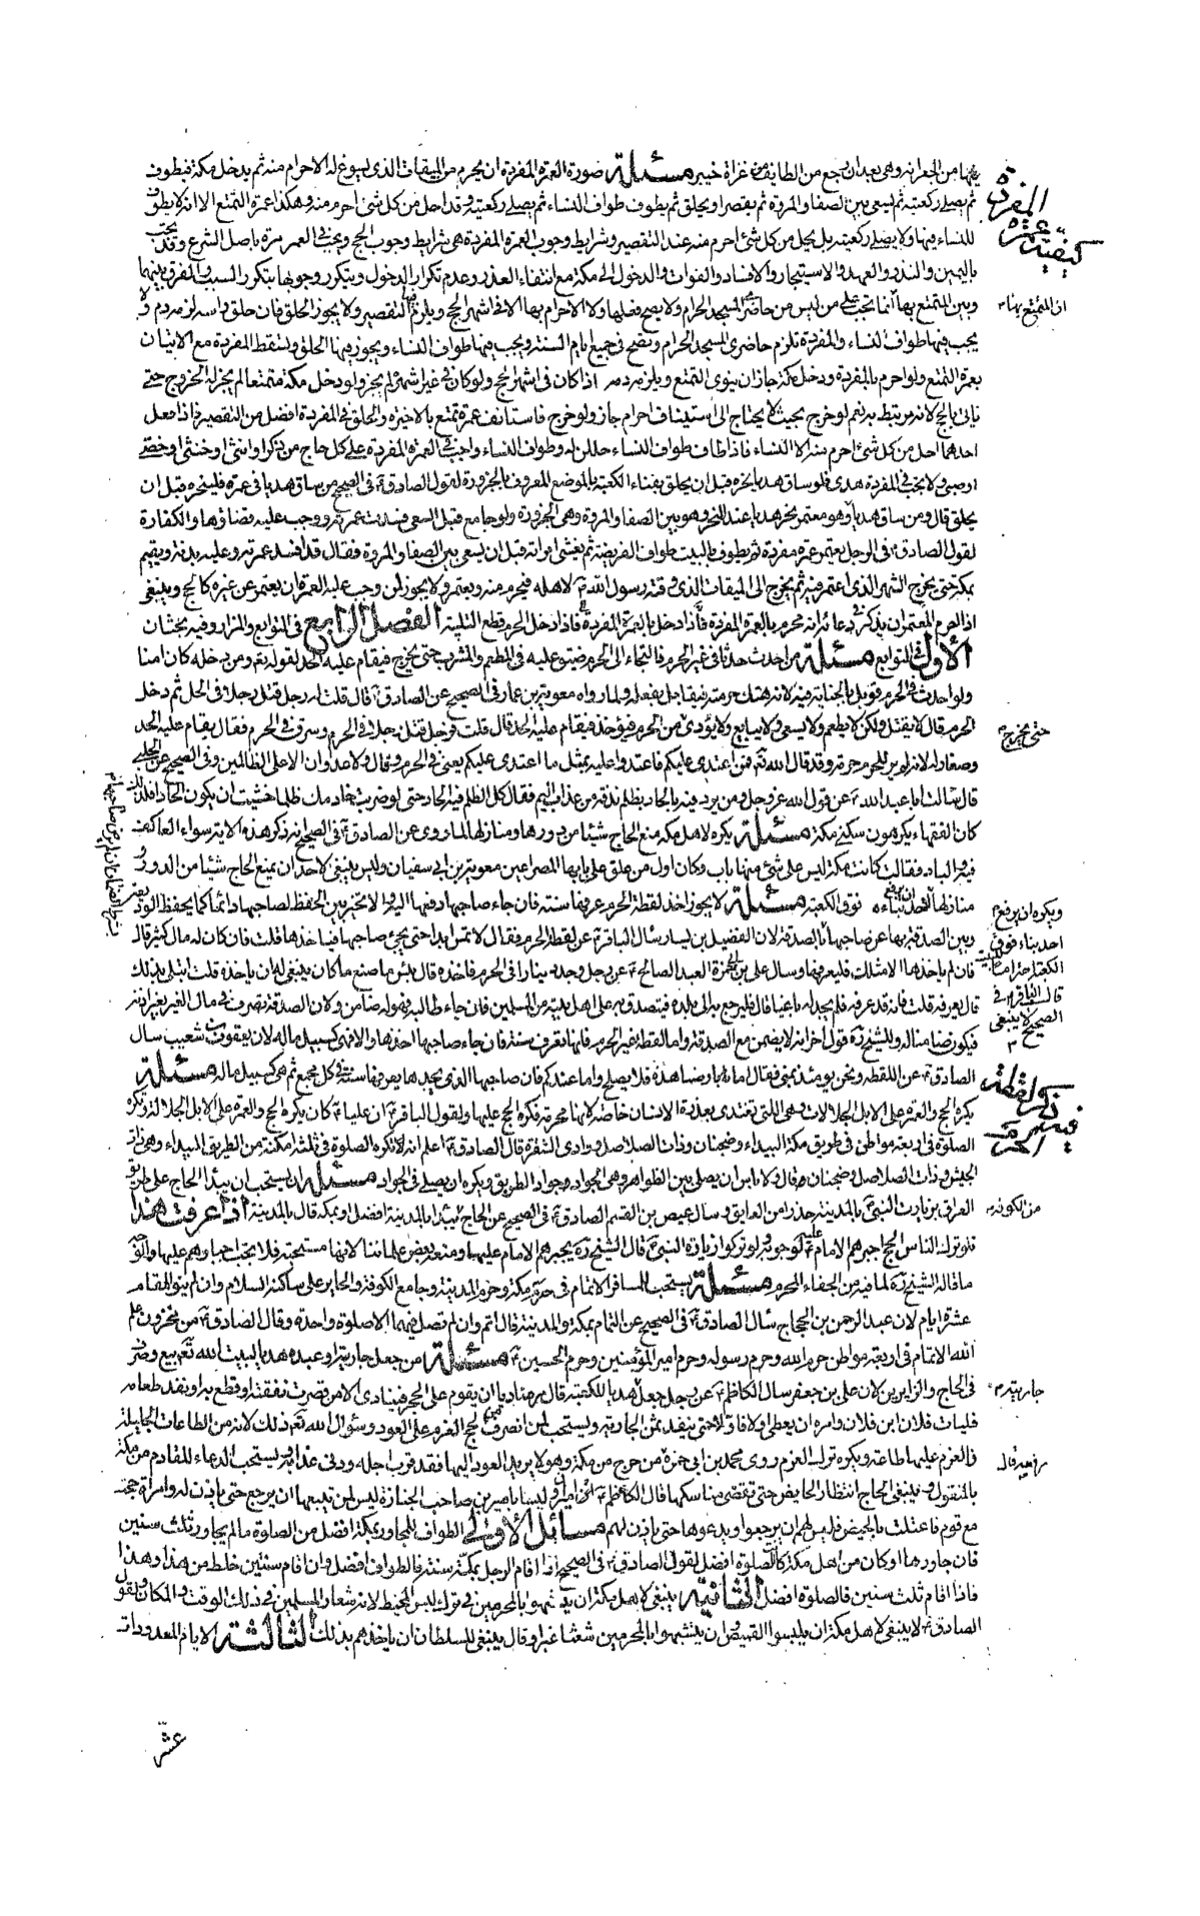 فيها من الجعرانه وهى بعد ان رجع من الطايف من غزاة خيبر مسئلة صورة العمرة المفردة ان يحرم من الميقات الذى يسوغ له الاحرام منه ثم يدخل مكة فيطوف
ثم يصلى ركعتيه ثم يسعى بين الصفا والمروة ثم يقصر او يحلق ثم يطوف طواف النساء ثم يصلى ركعتيه وقد احل من كل شئ احرم منه وهكذا عمرة التمتع الا انه لا يطوف
للنساء فيها ولا يصلى ركعتيه بل يحل من كل شئ احرم منه عند التقصير وشرايط وجوب العمرة المفردة هى شرايط وجوب الحج ويجب فى العمر مرة باصل الشرع وقد يجب
باليمين والنذر والعهد والاستيجار والافساد والفوات والدخول الى مكة مع انتفاء العذر وعدم تكرار الدخول ويتكرر وجوبها بتكرر السبب والفرق بينهما
وبين المتمتع بها انما تجب على من ليس من حاضرى المسجد الحرام ولا يصح فعلها ولا الاحرام بها الا فى اشهر الحج ويلزم فيها التقصير ولا يجوز الحلق فان حلق راسه لزمه دم ولا
يجب فيها طواف النساء والمفردة تلزم حاضرى المسجد الحرام وتصح فى جميع ايام السنة ويجب فيها طواف النساء ويجوز فيها الحلق وتسقط المفردة مع الاتيان
بعمرة التمتع ولو احرم بالمفردة ودخل مكة جاز ان ينوى التمتع ويلزمه دم اذا كان فى اشهر الحج ولو كان فى غير اشهره لم يجز ولو دخل مكة متمتعا لم يجز له الخروج حتى
ياتى بالحج لانه مرتبط به نعم لو خرج بحيث لا يحتاج الى استيناف احرام جاز ولو خرج فاستانف عمرة تمتع بالاخيرة والحلق فى المفردة افضل من التقصير فاذا فعل
احدهما احل من كل شئ احرم منه الا النساء فاذا طاف طواف النساء حللن له وطواف النساء واجب فى العمرة المفردة على كل حاج من ذكر او انثى او خنثى او خصى
او صبى ولا يجب فى المفردة هدى فلو ساق هديا نحره قبل ان يحلق بفناء الكعبة بالموضع المعروف بالحزورة لقول الصادق ع فى الصحيح من ساق هديا فى عمرة فلينحره قبل ان
يحلق قال ومن ساق هديا وهو معتمر نحر هديه عند المنحر وهو بين الصفا والمروة وهى الحزورة ولو جامع قبل السعى فسدت عمرته ووجب عليه قضاؤها والكفارة
لقول الصادق ع فى الرجل يعتمر عمرة مفردة ثم يطوف بالبيت طواف الفريضة ثم يغشى امراته قبل ان يسعى بين الصفا والمروة فقال قد افسد عمرته وعليه بدنة ويقيم
بمكة حتى يخرج الشهر الذى اعتمر فيه ثم يخرج الى الميقات الذى وقته رسول الله ص لاهله فيحرم منه ويعتمر ولا يجوز لمن وجب عليه العمرة ان يعتمر عن غيره كالحج وينبغى
اذا احرم المعتمر ان يذكر فى دعائه انه محرم بالعمرة المفردة فاذا دخل بالعمرة المفردة فاذا دخل الحرم قطع التلبية الفصل الرابع فى التوابع والمزار وفيه بحثان
الاول فى التوابع مسئلة من احدث حدثا فى غير الحرم فالتجاء الى الحرم ضيق عليه فى المطعم والمشرب حتى يخرج فيقام عليه الحد لقوله تعم ومن دخله كان امنا
ولو احدث فى الحرم قوبل بالجناية فيه لانه هتك حرمته فيقابل بفعله ولما رواه معوية بن عمار فى الصحيح عن الصادق ع قال قلت له رجل قتل رجلا فى الحل ثم دخل
الحرم قال لا يقتل ولكن لا يطعم ولا يسقى ولا يبايع ولا يؤذى من الحرم فيؤخذ فيقام عليه الحد قال قلت فرجل قتل رجلا فى الحرم وسرق فى الحرم فقال يقام عليه الحد
وصغار له لانه لم ير للحرم حرمة وقد قال الله تعم فمن اعتدى عليكم فاعتدوا عليه بمثل ما اعتدى عليكم يعنى فى الحرم وقال ولا عدوان الا على الظالمين وفى الصحيح عن الحلبى
قال سالت ابا عبد الله ع عن قول الله عز وجل ومن يرد فيه بالحاد بظلم نذقه من عذاب اليم فقال كل الظلم فيه الحاد حتى لو ضربت خادمك ظلما خشيت ان يكون الحادا فلذلك
كان الفقهاء يكرهون سكنى مكة مسئلة يكره لاهل مكة منع الحاج شيئا من دورها ومنازلها لما روى عن الصادق ع فى الصحيح انه ذكر هذه الاية سواء العاكف
فيه والباد فقال كانت مكة ليس على شئ منها باب وكان اول من علق على بابها المصراعين معوية بن ابى سفيان وليس ينبغى لاحد ان يمنع الحاج شيئا من الدور و
منازلها فوق الكعبة مسئلة لا يجوز اخذ لقطة الحرم عرفها سنة فان جاء صاحبها دفعها اليه والا تخير بين الحفظ لصاحبها دائما كما يحفظ الوديعة
وبين الصدقة بها عن صاحبها لان الفضيل بن يسار سال الباقر ع عن لقطة الحرم فقال لا تمس ابدا حتى يجئ صاحبها فياخذها قلت فان كان له مال كثير قال
فان لم ياخذها الا مثلك فليعرفها وسال على بن ابى حمزة العبد الصالح ع عن رجل وجد دينارا فى الحرم فاخذه قال بئس ما صنع ما كان ينبغى له ان ياخذه قلت ابتلى بذلك
قال يعرفه قلت فانه قد عرفه فلم يجد له باغيا قال فليرجع به الى بلده فيتصدق به على اهل بيت من المسلمين فان جاء طالبه فهو له ضامن ولان الصدقة تصرف فى مال الغير بغير اذنه
فيكون ضامنا له وللشيخ ره قول اخر انه لا يضمن مع الصدقة واما لقطة غير الحرم فانها تعرف سنة فان جاء صاحبها اخذها والا فهى كسبيل ماله لان يعقوب بن شعيب سال
الصادق ع عن اللقطة ونحن يومئذ بمنى فقال اما بارضنا هذه فلا يصلح واما عندكم فان صاحبها الذى يجدها يعرفها سنة فى كل مجمع ثم هى كسبيل ماله مسئلة
يكره الحج والعمرة على الابل الجلالات وهى التى تغتذى بعذرة الانسان خاصة لانها محرمة فكره الحج عليها ولقول الباقر ع ان عليا ع كان يكره الحج والعمرة على الابل الجلالة وتكره
الصلوة فى اربعة مواطن فى طريق مكة البيداء وضجنان وذات الصلاصل ووادى الشقرة قال الصادق ع اعلم انه لا تكره الصلوة فى ثلثة امكنة من الطريق البيداء وهى ذات
الجيش وذات الصلاصل وضجنان وقال ولا باس ان يصلى بين الظواهر وهى الجواد وجواد الطريق ويكره ان يصلى فى الجواد مسئلة يستحب ان يبدا الحاج على طريق
العراق بزيارة النبى ص بالمدينة حذرا من العايق وسال عيص بن القسم الصادق ع فى الصحيح عن الحاج يبتدا بالمدينة افضل او بمكة قال بالمدينة اذا عرفت هذا
فلو ترك الناس الحج اجبرهم الامام عليه لوجوبه ولو تركوا زيارة النبى ص قال الشيخ ره يجبرهم الامام عليها ومنعه بعض علمائنا لانها مستحبة فلا يجب اجبارهم عليها والوجه
ما قاله الشيخ ره لما فيه من الجفاء المحرم مسئلة يستحب للمسافر الاتمام فى حرم مكة وحرم المدينة وجامع الكوفة والحاير على ساكنه السلام وان لم ينو المقام
عشرة ايام لان عبد الرحمن بن الحجاج سال الصادق ع فى الصحيح عن التمام بمكة والمدينة قال اتم وان لم تصل فيهما الا صلوة واحدة وقال الصادق ع من مخزون علم
الله الاتمام فى اربعة مواطن حرم الله وحرم رسوله وحرم امير المؤمنين وحرم الحسين ع مسئلة من جعل جاريته او عبده هديا لبيت الله تعم بيع وصرف
فى الحاج والزايرين لان على بن جعفر سال الكاظم ع عن رجل جعل هديا للكعبة قال مر مناديا ان يقوم على الحجر فينادى الا من قصرت نفقته او قطع به او نفد طعامه
فليات فلان ابن فلان وامره ان يعطى اولا فاولا حتى ينفد ثمن الجارية ويستحب لمن انصرف من الحج العزم على العود وسؤال الله تعم ذلك لانه من الطاعات الجليلة
فالعزم عليها طاعة ويكره ترك العزم روى محمد بن ابى حمزة من خرج من مكة وهو لا يريد العود اليها فقد قرب اجله ودنى عذابه ويستحب الدعاء للقادم من مكة
بالمنقول وينبغى للحاج انتظار الحايض حتى تقضى مناسكها قال الكاظم ع اميران وليسا باميرين صاحب الجنازة ليس لمن تبعها ان يرجع حتى ياذن له وامراة حجت
مع قوم فاعتلت بالحيض فليس لهم ان يرجعوا ويدعوها حتى ياذن لهم مسائل الاولى الطواف للمجاور بمكة افضل من الصلوة ما لم يجاور ثلث سنين
فان جاورها او كان من اهل مكة كان الصلوة افضل لقول الصادق ع فى الصحيح اذا اقام الرجل بمكة سنة فالطواف افضل وان اقام سنتين خلط من هذا وهذا
فاذا اقام ثلث سنين فالصلوة افضل الثانية ينبغى لاهل مكة ان يتشبهوا بالمحرمين فى ترك لبس المخيط لانه شعار المسلمين فى ذلك الوقت والمكان ولقول
الصادق ع لا ينبغى لاهل مكة ان يلبسوا القميص وان يتشبهوا بالمحرمين شعثا غبرا وقال ينبغى للسلطان ان ياخذهم بذلك الثالثة الايام المعدودات
كيفية عمرة
المفردة
ان المتمتع بها
حتى يخرج
ويكره ان يرفع
احد بناء فوق
الكعبة احتراما للبيت
قال الباقر ع فى
الصحيح لا ينبغى
ذكر لقطة
الحرم
من الكوفة
جاريته
عشر